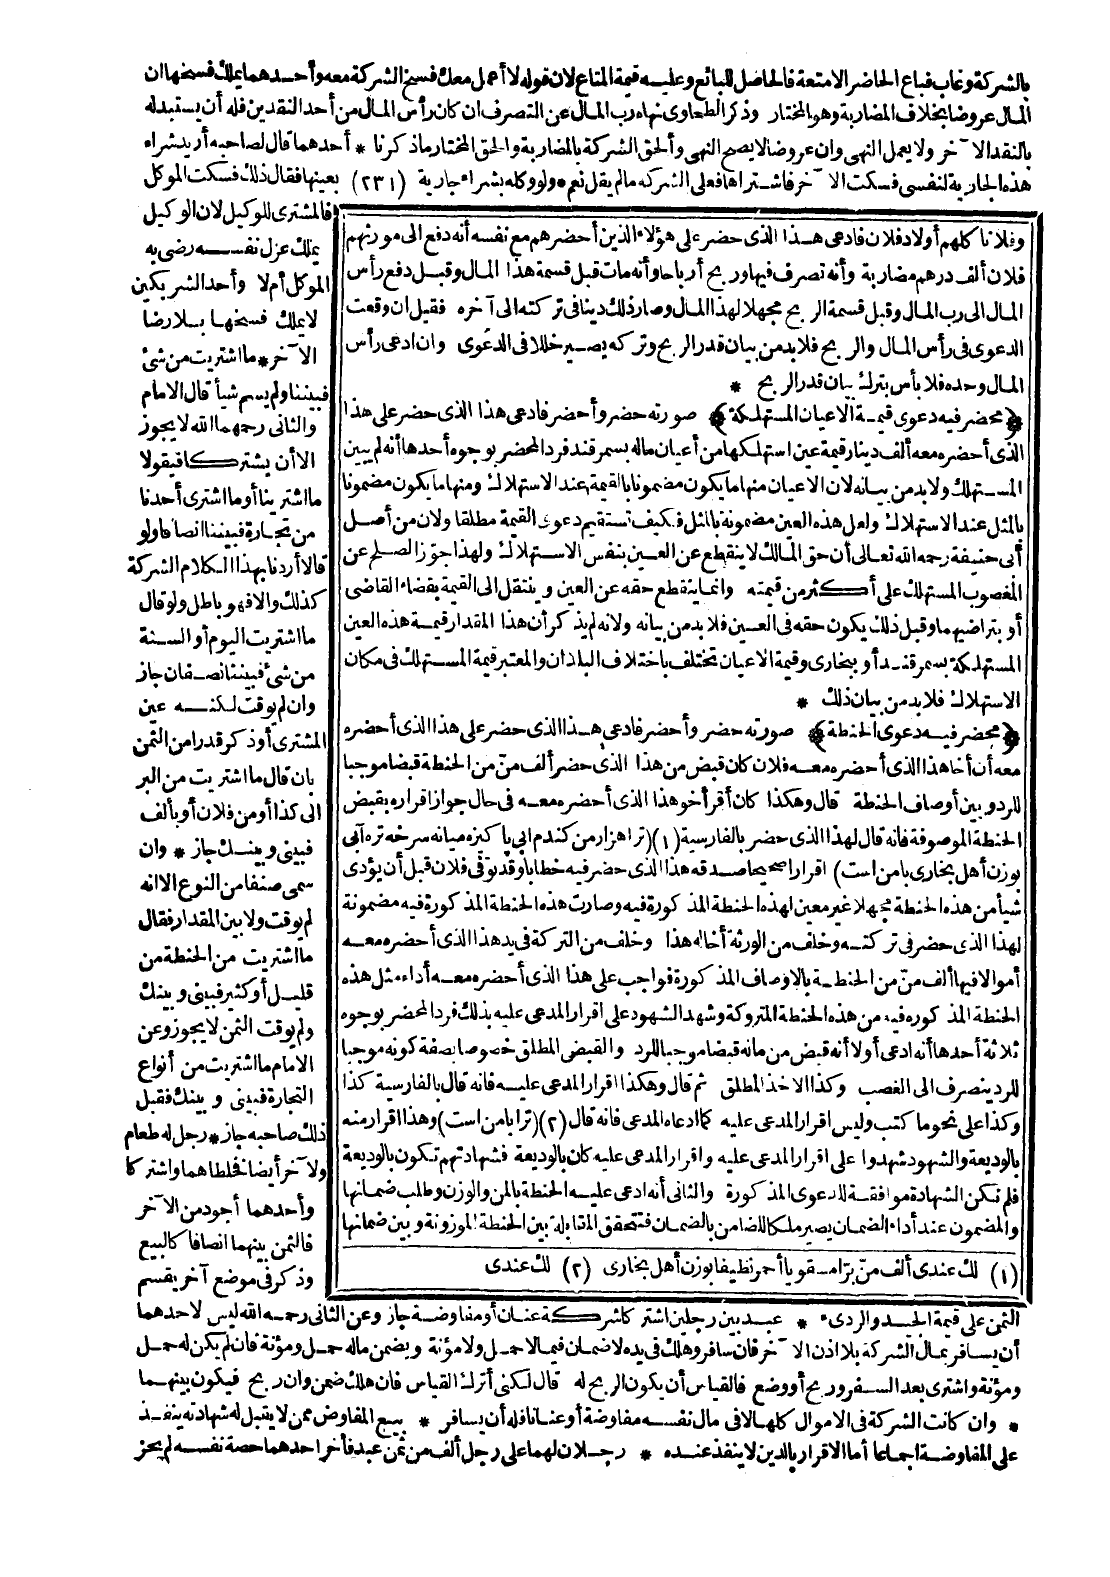 بالشركة وغاب فباع الحاضر الامتعة فالحاصل للبائع وعليه قيمة المتاع لان قوله لا أعمل معك فسخ الشركة معه وأحدهما يملك فسخها ان
المال عروضا بخلاف المضاربة وهو المختار وذكر الطحاوى نهاه رب المال عن التصرف ان كان رأس المال من أحد النقدين فله أن يستبدله
بالنقد الآخر ولا يعمل النهى وان عروضا لا يصح النهى وألحق الشركة بالمضاربة والحق المختار ماذكرنا * أحدهما قال لصاحبه أريد شراء
هذه الجارية لنفسى فسكت الآخر فاشتراها فعلى الشركه مالم يقل نعم * ولو وكله بشراء جارية (٢٣١) بعينها فقال ذلك فسكت الموكل
فالمشترى للوكيل لان الوكيل
يملك عزل نفسه رضى به
الموكل أم لا وأحد الشريكين
لا يملك فسخها بلا رضا
الآخر * ما اشتريت من شئ
فبيننا ولم يسم شيأ قال الامام
والثانى رحمهما الله لا يجوز
الا أن يشتركا فيقولا
ما اشترينا أو ما اشترى أحدنا
من تجارة فبيننا انصافا ولو
قالا أردنا بهذا الكلام الشركة
كذلك والا فهو باطل ولو قال
ما اشتريت اليوم أو السنة
من شئ فبيننا نصفان جاز
وان لم يوقت لكنه عين
المشترى أو ذكر قدرا من الثمن
بان قال ما اشتريت من البر
الى كذا أو من فلان أو بألف
فبينى وبينك جاز * وان
سمى صنفا من النوع الا انه
لم يوقت ولا بين المقدار فقال
ما اشتريت من الحنطة من
قليل أو كثير فبينى وبينك
ولم يوقت الثمن لا يجوز وعن
الامام ما اشتريت من أنواع
التجارة فبينى وبينك فقبل
ذلك صاحبه جاز * رجل له طعام
ولآخر أيضا فخلطاهما واشتركا
وأحدهما أجود من الآخر
فالثمن بينهما انصافا كالبيع
وذكر فى موضع آخر يقسم
وفلانا كلهم أولاد فلان فادعى هذا الذى حضر على هؤلاء الذين أحضرهم مع نفسه أنه دفع الى مورثهم
فلان ألف درهم مضاربة وأنه تصرف فيها وربح أرباحا وأنه مات قبل قسمة هذا المال وقبل دفع رأس
المال الى رب المال وقبل قسمة الربح مجهلا لهذا المال وصار ذلك دينا فى تركته الى آخره فقيل ان وقعت
الدعوى فى رأس المال والربح فلابد من بيان قدر الربح وتركه يصير خللا فى الدعوى وان ادعى رأس
المال وحده فلا بأس بترك بيان قدر الربح *
﴿محضر فيه دعوى قيمة الاعيان المستهلكة﴾ صورته حضر وأحضر فادعى هذا الذى حضر على هذا
الذى أحضره معه ألف دينار قيمة عين استهلكها من أعيان ماله بسمرقند فرد المحضر بوجوه أحدها أنه لم يبين
المستهلك ولابد من بيانه لان الاعيان منها ما يكون مضمونا بالقيمة عند الاستهلاك ومنها ما يكون مضمونا
بالمثل عند الاستهلاك ولعل هذه العين مضمونة بالمثل فكيف تستقيم دعوى القيمة مطلقا ولان من أصل
أبى حنيفة رحمه الله تعالى أن حق المالك لا ينقطع عن العين بنفس الاستهلاك ولهذا جوّز الصلح عن
المغصوب المستهلك على أكثر من قيمته وانما ينقطع حقه عن العين وينتقل الى القيمة بقضاء القاضى
أو بتراضيهما وقبل ذلك يكون حقه فى العين فلابد من بيانه ولانه لم يذكر أن هذا المقدار قيمة هذه العين
المستهلكة بسمرقند أو ببخارى وقيمة الاعيان تختلف باختلاف البلدان والمعتبر قيمة المستهلك فى مكان
الاستهلاك فلابد من بيان ذلك *
﴿محضر فيه دعوى الحنطة﴾ صورته حضر وأحضر فادعى هذا الذى حضر على هذا الذى أحضره
معه أن أخا هذا الذى أحضره معه فلان كان قبض من هذا الذى حضر ألف منّ من الحنطة قبضا موجبا
للرد وبين أوصاف الحنطة قال وهكذا كان أقر أخو هذا الذى أحضره معه فى حال جواز اقراره بقبض
الحنطة الموصوفة فانه قال لهذا الذى حضر بالفارسية (١)(ترا هزار من كندم ابى پاكيزه ميانه سرخه تره آبى
بوزن أهل بخارى با من است) اقرارا صحيحا صدقه هذا الذى حضر فيه خطابا وقد توفى فلان قبل أن يؤدى
شيأ من هذه الحنطة مجهلا غير معين لهذه الحنطة المذكورة فيه وصارت هذه الحنطة المذكورة فيه مضمونة
لهذا الذى حضر فى تركته وخلف من الورثة أخا له هذا وخلف من التركة فى يد هذا الذى أحضره معه
أموالا فيها ألف منّ من الحنطة بالاوصاف المذكورة فواجب على هذا الذى أحضره معه أداء مثل هذه
الحنطة المذكوره فيه من هذه الحنطة المتروكة وشهد الشهود على اقرار المدعى عليه بذلك فرد المحضر بوجوه
ثلاثة أحدها أنه ادعى أولا أنه قبض من مانه قبضا موجبا للرد والقبض المطلق خصوصا بصفة كونه موجبا
للرد ينصرف الى الغصب وكذا الاخذ المطلق ثم قال وهكذا اقرار المدعى عليه فانه قال بالفارسية كذا
وكذا على نحو ما كتب وليس اقرار المدعى عليه كما ادعاه المدعى فانه قال (٢)(ترا با من است) وهذا اقرار منه
بالوديعة والشهود شهدوا على اقرار المدعى عليه واقرار المدعى عليه كان بالوديعة فشهادتهم تكون بالوديعة
فلم تكن الشهادة موافقة للدعوى المذكورة والثانى أنه ادعى عليه الحنطة بالمن والوزن وطلب ضمانها
والمضمون عند أداء الضمان يصير ملكا للضامن بالضمان فتتحقق المقابلة بين الحنطة الموزونة وبين ضمانها
(١) لك عندى ألف منّ برّا مسقويا أحمر نظيفا بوزن أهل بخارى (٢) لك عندى
الثمن على قيمة الجيد والردىء * عبد بين رجلين اشتركا شركة عنان أو مفاوضة جاز وعن الثانى رحمه الله ليس لاحدهما
أن يسافر بمال الشركة بلا اذن الآخر فان سافر وهلك فى يده لا ضمان فيما لا حمل ولا مؤنة ويضمن ماله حمل ومؤنة فان لم يكن له حمل
ومؤنة واشترى بعد السفر وربح أو وضع فالقياس أن يكون الربح له قال لكنى أترك القياس فان هلك ضمن وان ربح فيكون بينهما
* وان كانت الشركة فى الاموال كلها لا فى مال نفسه مفاوضة أو عنانا فله أن يسافر * بيع المفاوض ممن لا يقبل له شهادته ينفذ
على المفاوضة اجماعا أما الاقرار بالدين لا ينفذ عنده * رجلان لهما على رجل ألف من ثمن عبد فأخر احدهما حصة نفسه لم يجز